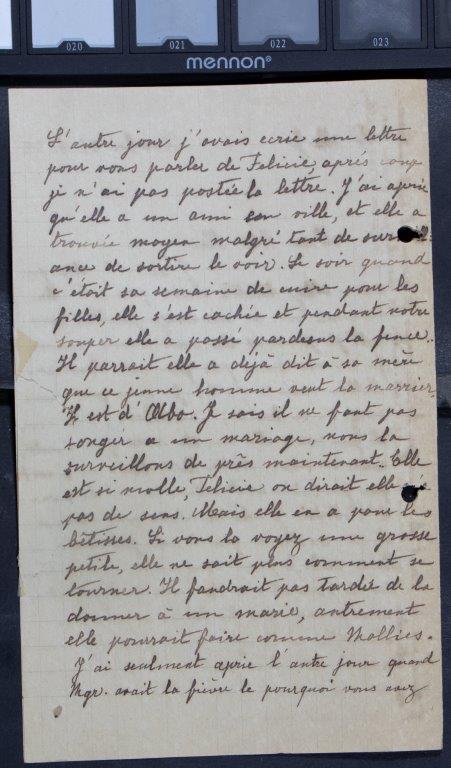 020 021 022 023
mennon®
L'autre jour j'avais ecrie une lettre
pour vous parler de Felicie, après coup
je n'ai pas postée la lettre. J'ai aprie
qu'elle a un ami en ville, et elle a
trouvée moyen malgré tant de
ance de sortire le voir. Le soir quand
c'était sa semaine de cuire pour les
filles, elle s'est cachie et pendant notre
souper elle a passé pardesus la fence.
Il parrait elle a déjà dit à sa mère
que ce jeune homme veut la marrier.
Il est d' Albo. Je sais il ne faut pas
songer a un mariage, nous la
surveillons de près maintenant. Elle
est si molle, Felicie on dirait elle
pas de sens. Mais elle en a pour les
bêtisses. Si vous la voyez une grosse
petite, elle ne sait plus comment se
tourner. Il faudrait pas tardée de la
donner à un marie, autrement
elle pourrait faire comme Mollies.
J'ai seulment aprie l'autre jour quand
Mgr. avait la fièvre le pourquoi vous avez